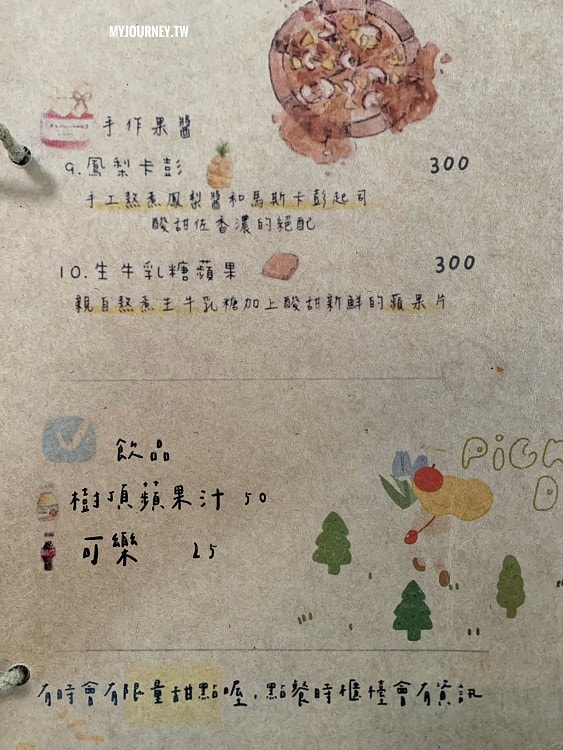 MYJOURNEY.TW
手作果醬
9.鳳梨卡彭 300
手工熬煮鳳梨醬和馬斯卡彭起司
酸甜佐香濃的絕配
10.生牛乳糖蘋果 300
親自熬煮生牛乳糖加上酸甜新鮮的蘋果片
飲品
PiCK
樹頂蘋果汁 50
D
可樂 25
有時會有限量甜點喔,點餐時櫃檯會有資訊